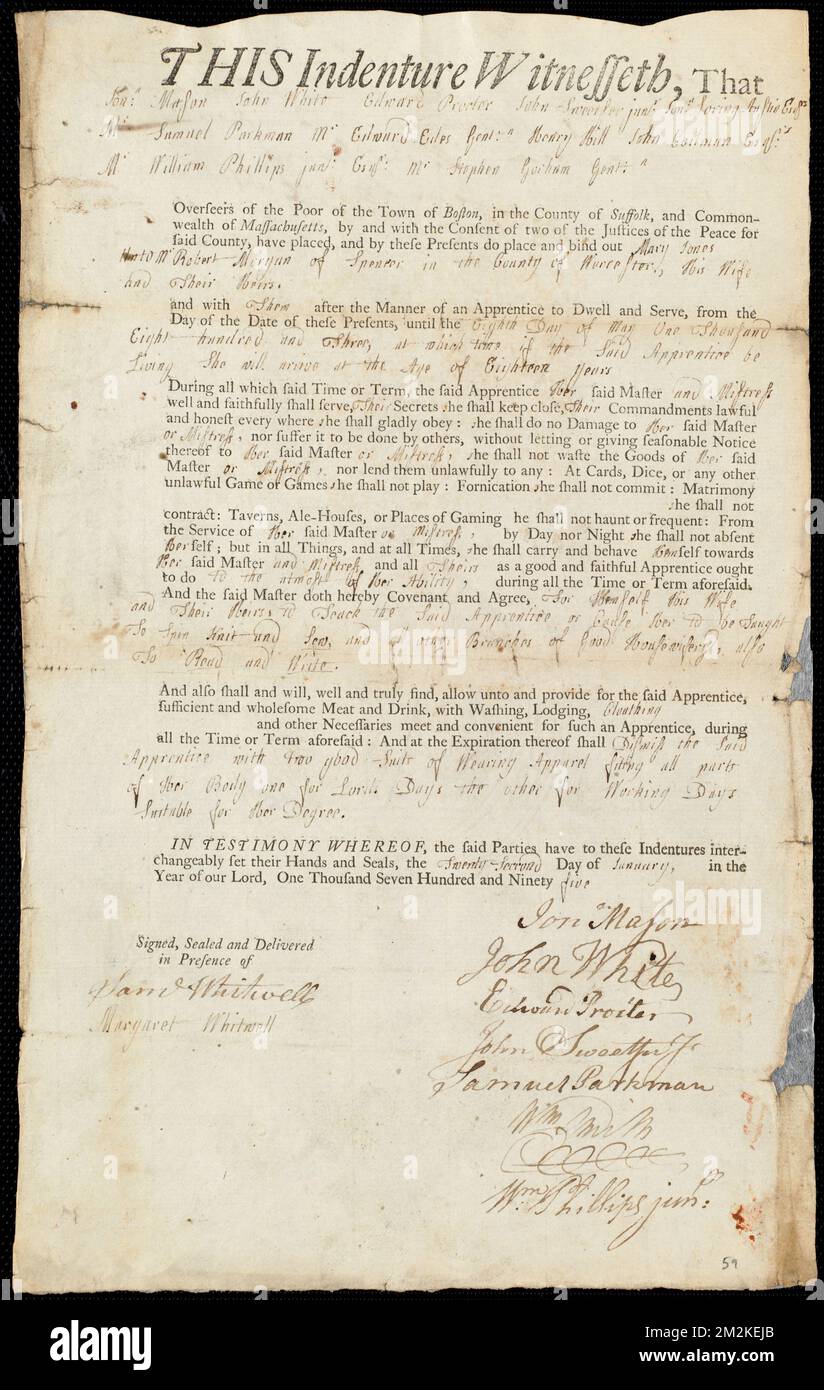 THIS Indenture Witnesseth, That
Jonª Mason John White Edward Procter John Sweetser junʳ Jonª Loring Austin Esqʳˢ
Mʳ Samuel Parkman Mʳ Edward Edes Gent:ⁿ Henry Hill John Coleman Esqʳˢ
Mʳ William Phillips junʳ Esqʳ Mʳ Stephen Gorham Gent:ⁿ
Overseers of the Poor of the Town of Boston, in the County of Suffolk, and Common-
wealth of Massachusetts, by and with the Consent of two of the Justices of the Peace for
said County, have placed, and by these Presents do place and bind out Mary Jones
Unto Mʳ Robert Morgan of Spencer in the County of Worcester, His Wife
and Their Heirs.
and with Them after the Manner of an Apprentice to Dwell and Serve, from the
Day of the Date of these Presents, until the Eighth Day of May One Thousand
Eight hundred and Three, at which time if the Said Apprentice be
Living She will arive at the Age of Eighteen years
During all which said Time or Term, the said Apprentice Her said Master and Mistress
well and faithfully shall serve, Their Secrets she shall keep close, Their Commandments lawful
and honest every where she shall gladly obey: she shall do no Damage to Her said Master
or Mistress, nor suffer it to be done by others, without letting or giving seasonable Notice
thereof to Her said Master or Mistress, she shall not waste the Goods of Her said
Master or Mistress, nor lend them unlawfully to any: At Cards, Dice, or any other
unlawful Game or Games she shall not play: Fornication she shall not commit: Matrimony
she shall not
contract: Taverns, Ale-Houses, or Places of Gaming he shall not haunt or frequent: From
the Service of Her said Master or Mistress, by Day nor Night she shall not absent
Herself; but in all Things, and at all Times, she shall carry and behave Herself towards
Her said Master and Mistress and all Theirs as a good and faithful Apprentice ought
to do to the utmost of Her Ability, during all the Time or Term aforesaid.
And the said Master doth hereby Covenant and Agree, For Himself His Wife
and Their Heirs, to Teach the Said Apprentice or Cause Her to be Taught
To Spin Knit and Sew, and yᵉ other Branches of Good Housewifery, also
To Read and Write.
And also shall and will, well and truly find, allow unto and provide for the said Apprentice,
sufficient and wholesome Meat and Drink, with Washing, Lodging, Cloathing
and other Necessaries meet and convenient for such an Apprentice, during
all the Time or Term aforesaid: And at the Expiration thereof shall Dismiss the Said
Apprentice with two good Suits of Wearing Apparel fitting all parts
of Her Body one for Lords Days the other for Working Days
Suitable for Her Degree.
IN TESTIMONY WHEREOF, the said Parties have to these Indentures inter-
changeably set their Hands and Seals, the Twenty Second Day of January, in the
Year of our Lord, One Thousand Seven Hundred and Ninety five
Signed, Sealed and Delivered
in Presence of
Samˡ Whitwell
Margaret Whitwell
Jonª Mason
John White
Edward Procter
John Sweetser Jʳ
Samuel Parkman
Wm. Smith
Wm. Phillips junʳ:
59
alamy
Image ID: 2M2KEJB
www.alamy.com